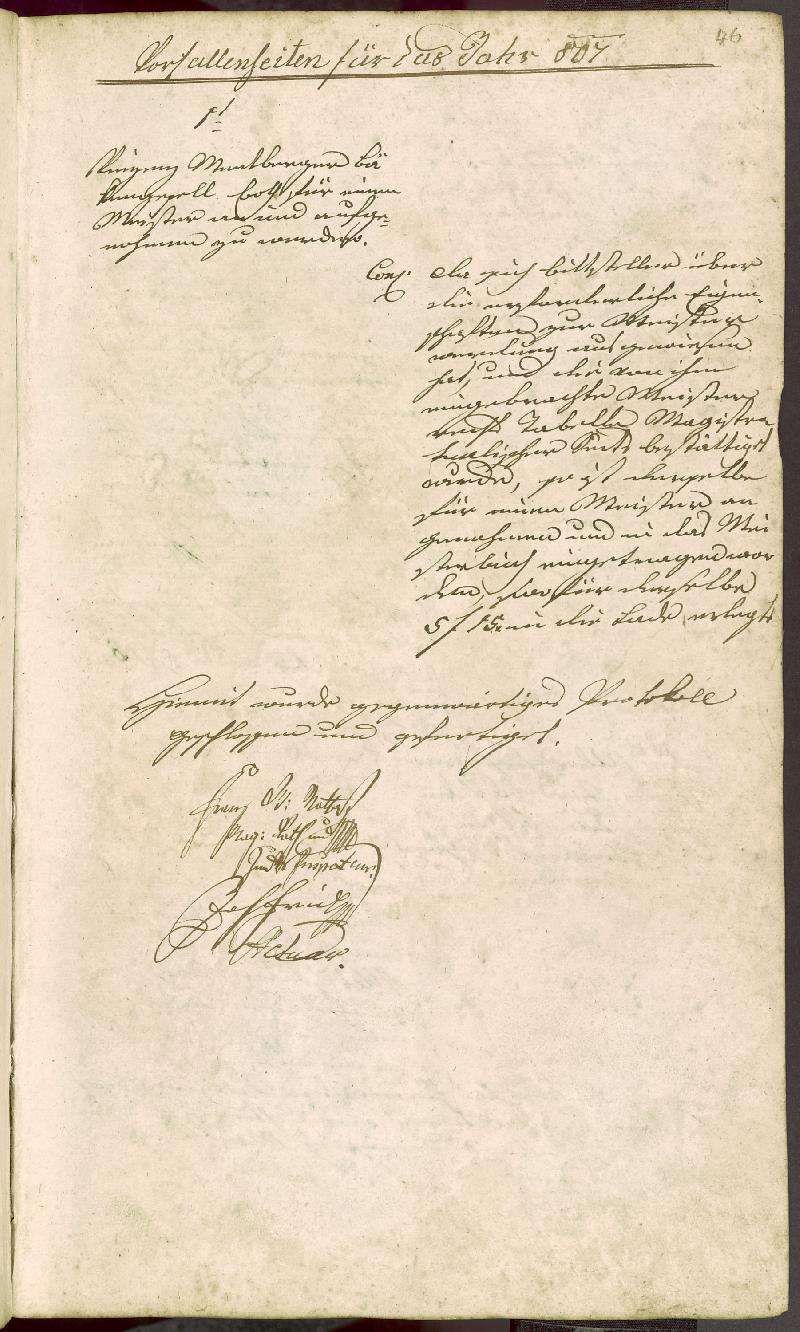 46
Vorfallenheiten für das Jahr 807
1t
Vinzenz Mentberger bä
kengesell bath für einen
Meister an und aufge=
nohmen zu werden.
Conc: Da sich bittsteller über
die erforderliche Eigen-
schaften zur Meister
werdung ausgewiesen
hat, und die von ihm
eingebrachte Meister
rechts Tabelle Magistra
tualischer Seits bestättiget
wurde, so ist derselbe
für einen Meister an
genohmen und in das Mei
sterbuch eingetragen wor
den, wofür derselbe
5 f 15 in die Lade erlegt
Hiemit wurde gegenwärtiges Protokoll
geschlossen und gefertiget.
Franz
Mag: Rath und
Inspector.
Actuar.